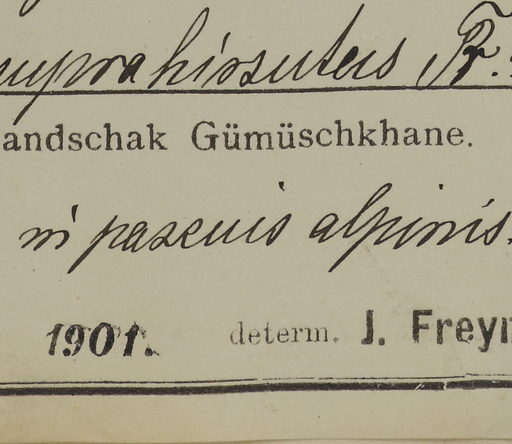 hirsutus Fr.
andschak Gümüschkhane.
in pascuis alpinis.
1901. determ. J. Frey